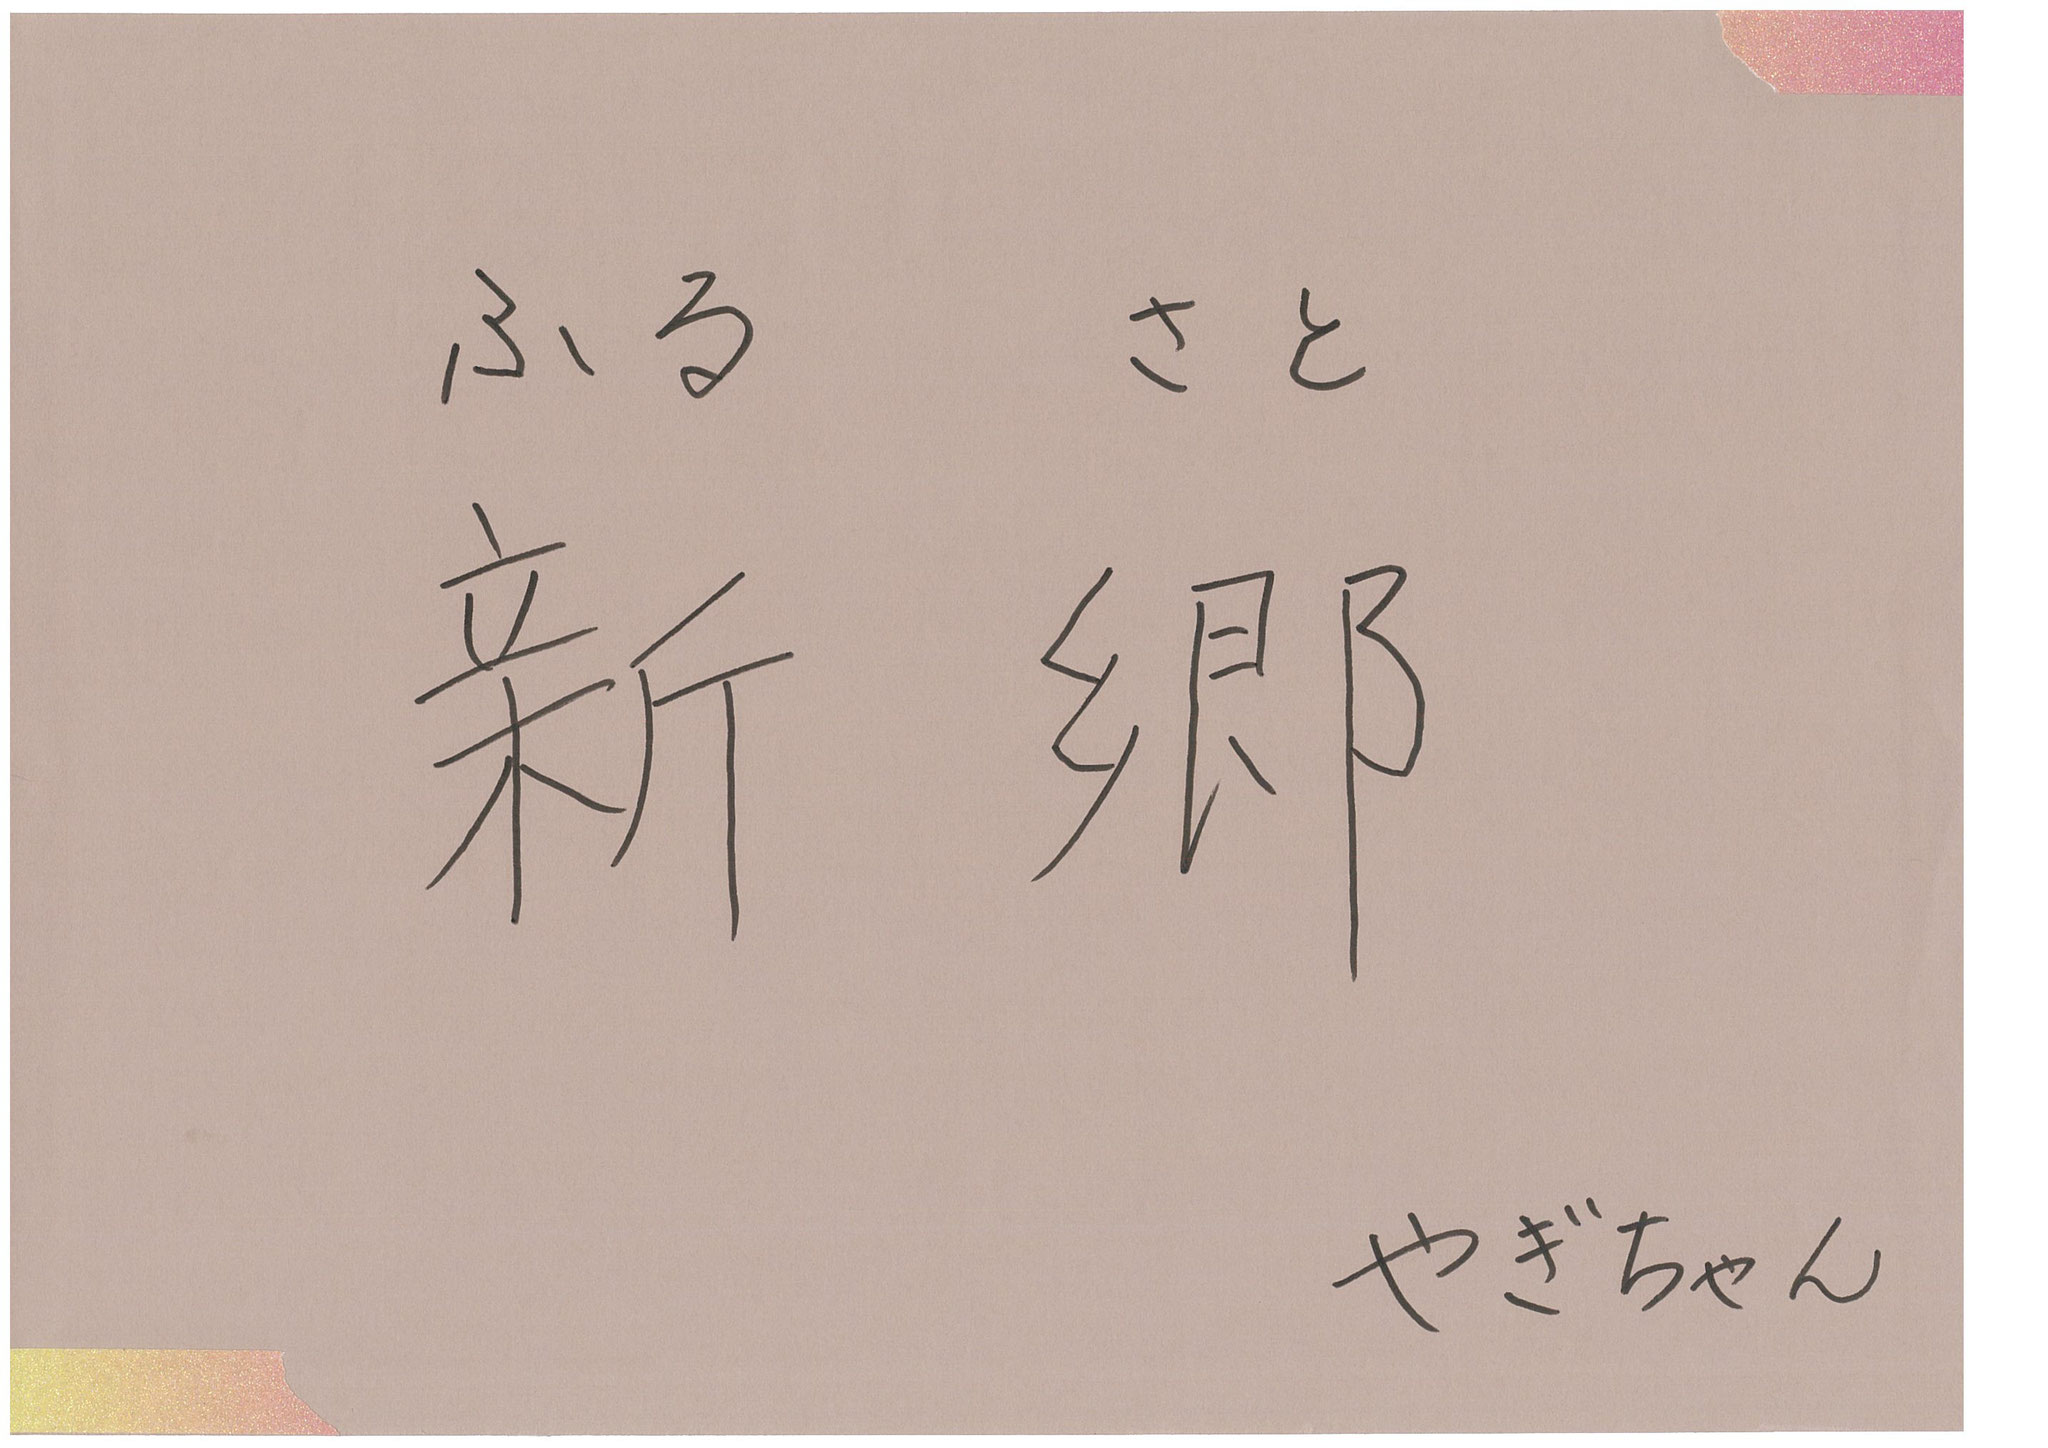 ふるさと
新郷
やぎちゃん